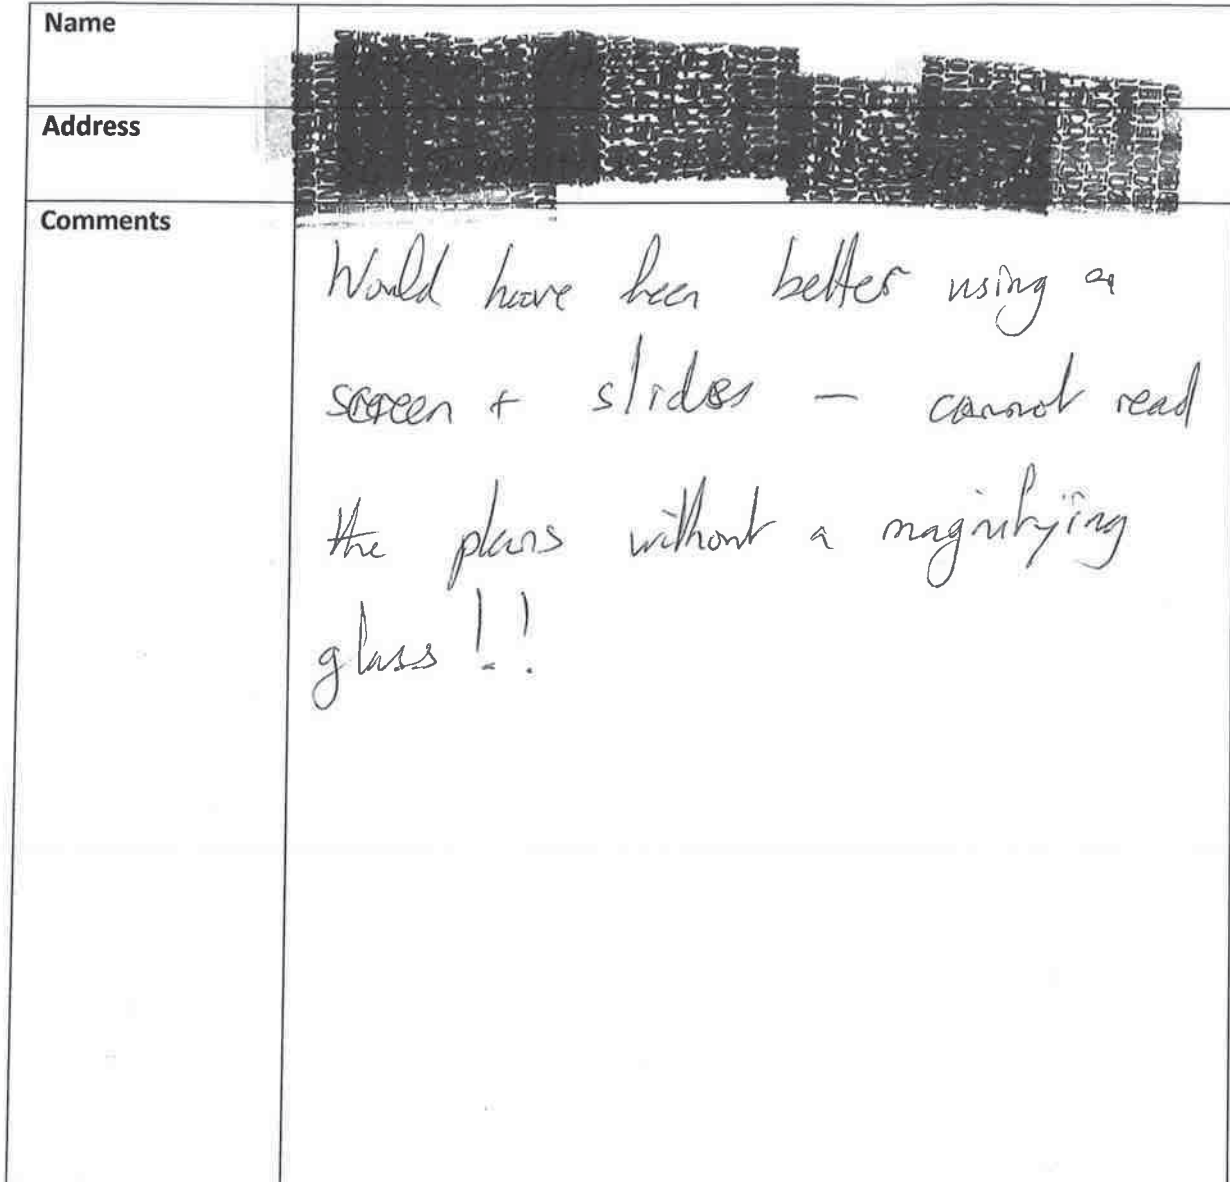 Name
Address
Comments
Would have been better using a
screen + slides – cannot read
the plans without a magnifying
glass !!